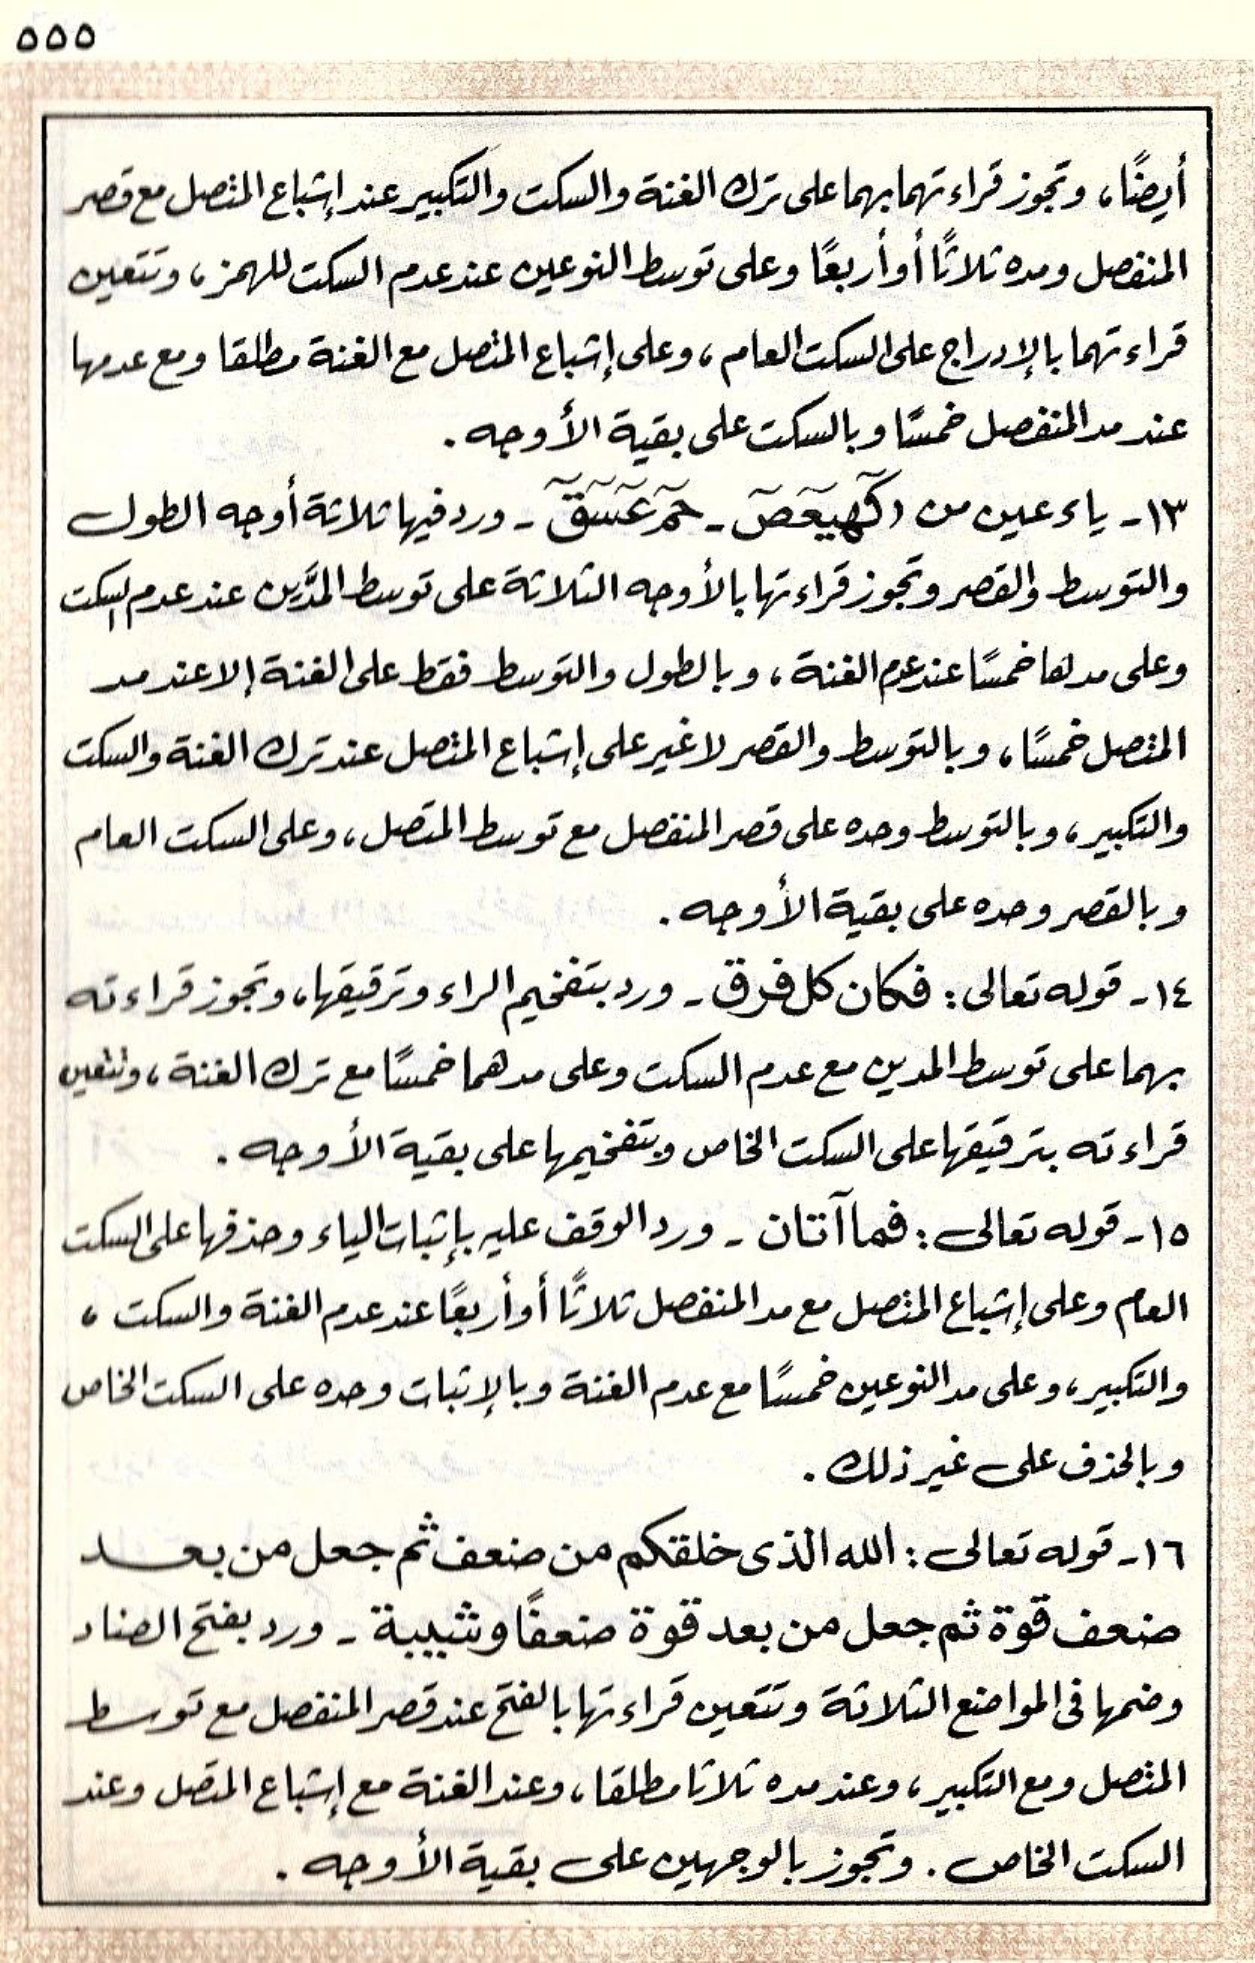 ٥٥٥
أيضًا، وتجوز قراءتهما بهما على ترك الغنة والسكت والتكبير عند إشباع المتصل مع قصر
المنفصل ومده ثلاثًا أو أربعًا وعلى توسط النوعين عند عدم السكت للهمز، وتتعين
قراءتهما بالإدراج على السكت العام، وعلى إشباع المتصل مع الغنة مطلقا ومع عدمها
عند مد المنفصل خمسًا وبالسكت على بقية الأوجه.
١٣- ياء عين من كٓهيعٓصٓ - حمٓ عٓسٓقٓ - ورد فيها ثلاثة أوجه الطول
والتوسط والقصر وتجوز قراءتها بالأوجه الثلاثة على توسط المدَّين عند عدم السكت
وعلى مدها خمسًا عند عدم الغنة، وبالطول والتوسط فقط على الغنة إلا عند مد
المتصل خمسًا، وبالتوسط والقصر لا غير على إشباع المتصل عند ترك الغنة والسكت
والتكبير، وبالتوسط وحده على قصر المنفصل مع توسط المتصل، وعلى السكت العام
وبالقصر وحده على بقية الأوجه.
١٤- قوله تعالى: فكان كل فرق - ورد بتفخيم الراء وترقيقها، وتجوز قراءته
بهما على توسط المدين مع عدم السكت وعلى مدهما خمسًا مع ترك الغنة، وتتعين
قراءته بترقيقها على السكت الخاص وبتفخيمها على بقية الأوجه.
١٥- قوله تعالى: فما آتان - ورد الوقف عليه بإثبات الياء وحذفها على السكت
العام وعلى إشباع المتصل مع مد المنفصل ثلاثًا أو أربعًا عند عدم الغنة والسكت،
والتكبير، وعلى مد النوعين خمسًا مع عدم الغنة وبالإثبات وحده على السكت الخاص
وبالحذف على غير ذلك.
١٦- قوله تعالى: الله الذى خلقكم من ضعف ثم جعل من بعد
ضعف قوة ثم جعل من بعد قوة ضعفًا وشيبة - ورد بفتح الضاد
وضمها فى المواضع الثلاثة وتتعين قراءتها بالفتح عند قصر المنفصل مع توسط
المتصل ومع التكبير، وعند مده ثلاثا مطلقا، وعند الغنة مع إشباع المتصل وعند
السكت الخاص. وتجوز بالوجهين على بقية الأوجه.